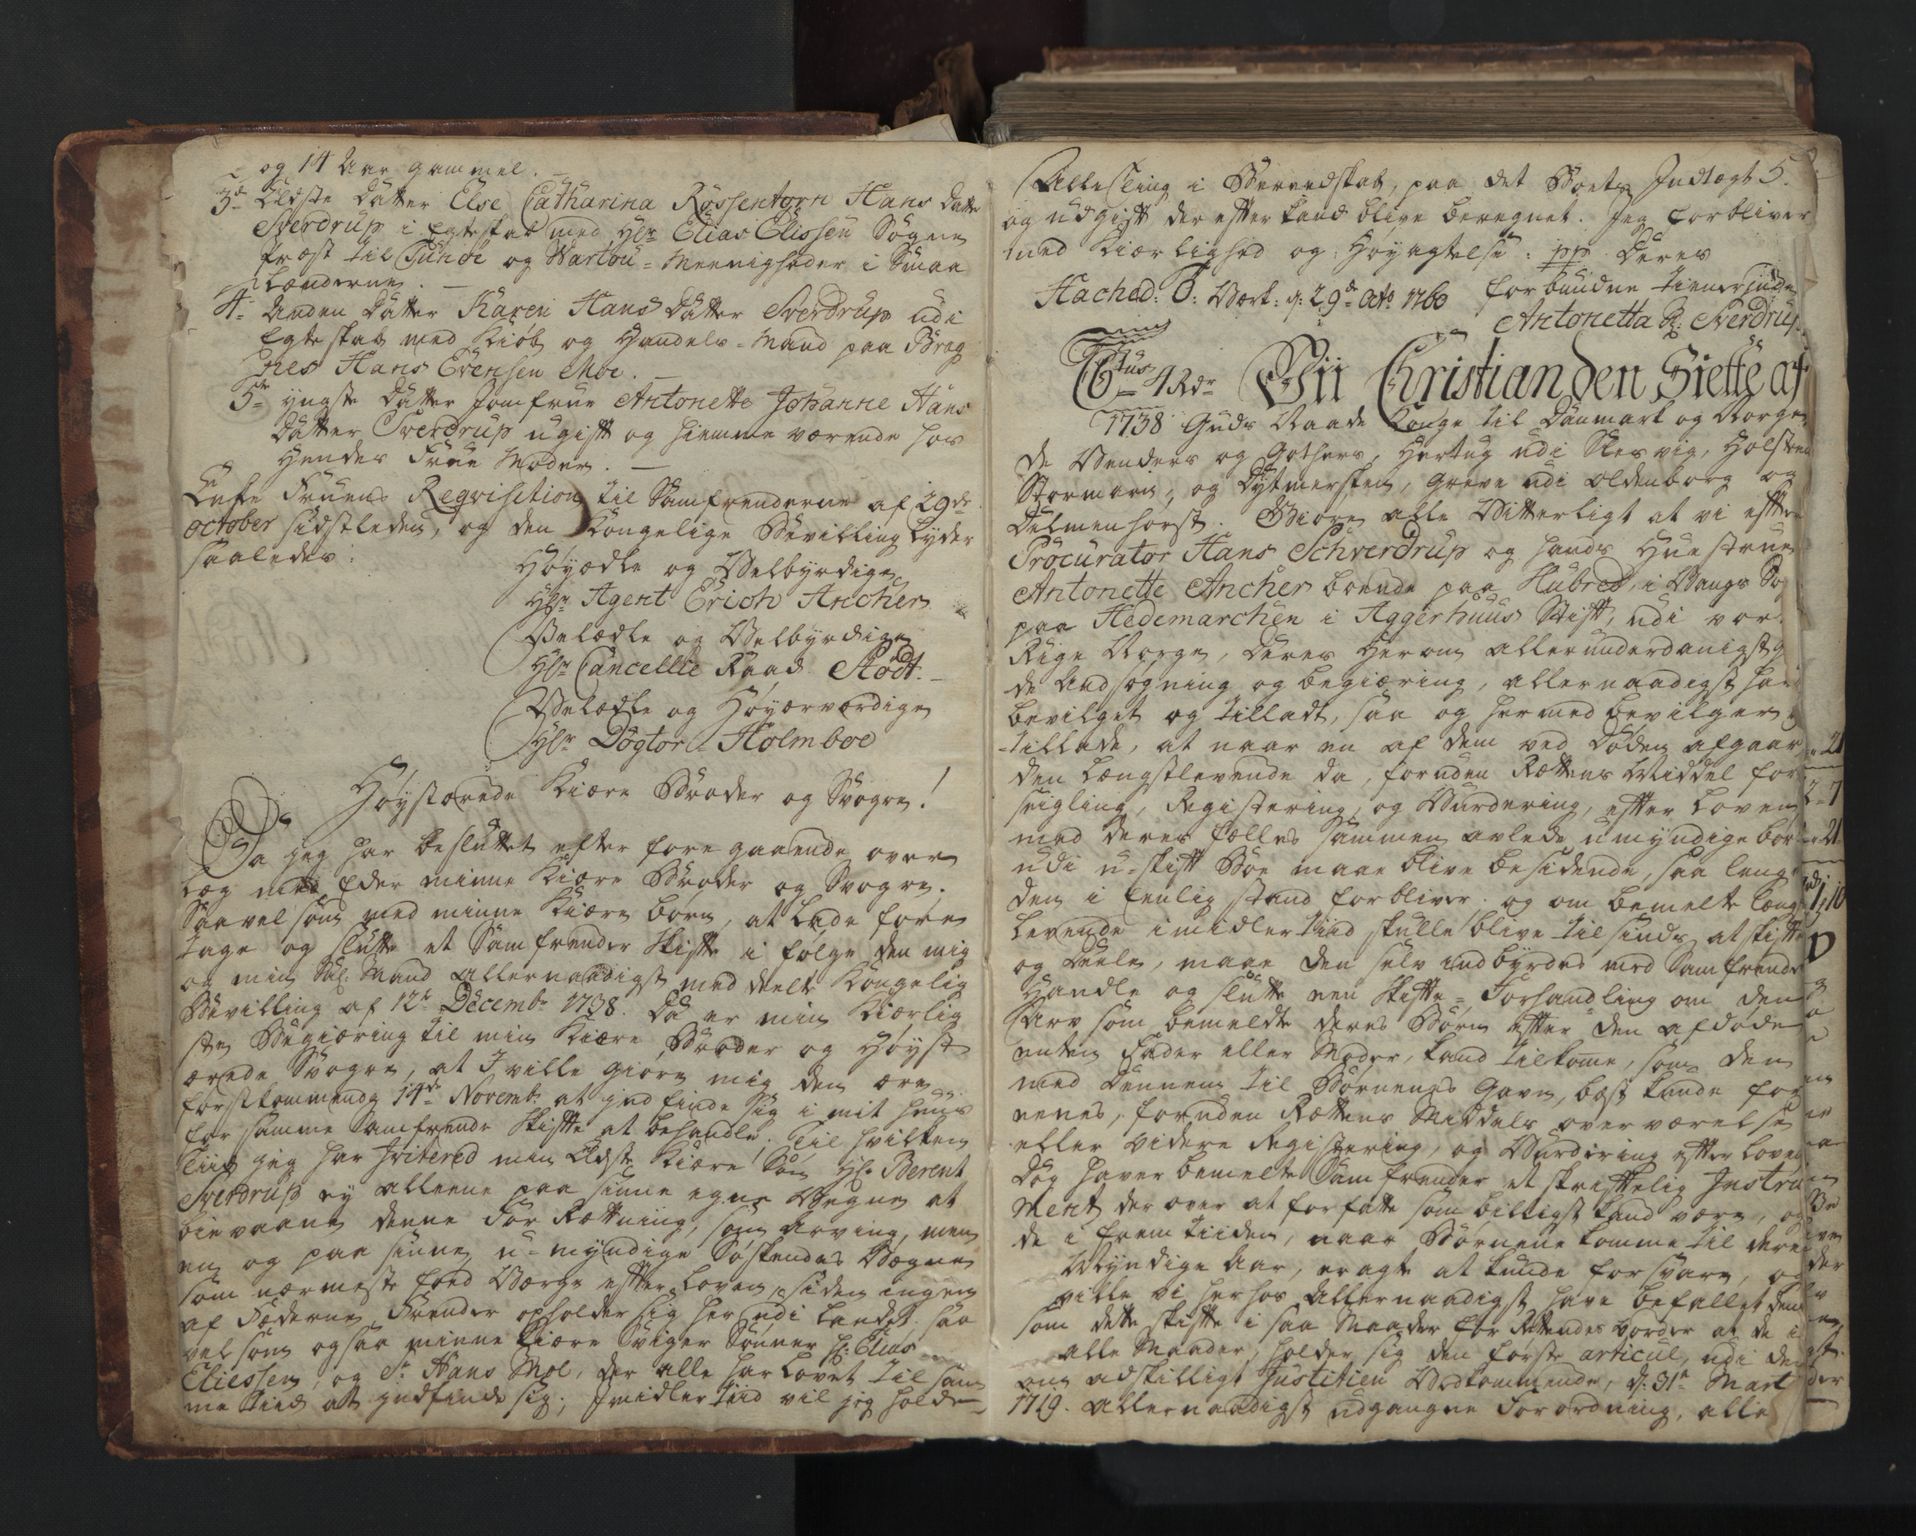 og 14 Aar gammel.
3de Eldste Datter Else Catharina Rossentorn Hans Datter
Sverdrup i Egteskab med Hr: Elias Elissen Sogne
præst til Tunøe og Wartou-Meenigheder i Smaa
Lænderne.
4. Anden Datter Karen Hans Datter Sverdrup udi
Egteskab med Kiøb og Handels-Mand paa Brag
nes Hans Evensen Moe.
5te yngste Datter Jomfrue Antonette Johanne Hans
Datter Sverdrup ugift og hiemme værende hos
Hendes Frue Moder.
Enke Fruens Reqvisition til Samfrenderne af 29de
october sidstleden, og den Kongelige Bevilling lyder
saaledes:
Høyædle og Velbyrdige
Hr: Agent Erich Ancher
Velædle og Velbyrdige
Hr: Cancellie Raad Stodt.
Velædle og Høyærværdige
Hr: Dogtor Holmboe
Høystærede Kiære Broder og Svogre!
Da jeg har besluttet efter foregaaende over
læg med Eder minne Kiære Broder og Svogre.
Saavelsom med minne Kiære børn, at lade fore
tage og slutte et Samfrender Skifte i følge den mig
og min Sal: Mand allernaadigst meddeelte Kongelig
Bevilling af 12te Decembr 1738. Da er min Kiærlig
ste Begiæring til min Kiære Broder og Høyst
ærede Svogre, at I ville giøre mig den ære
førstkommende 14de Novembr at indfinde sig i mit huus
for samme Samfrende Skifte at behandle. Til hvilken
Tiid jeg har Invitered min Eldste Kiære Søn Hr. Berent
Sverdrup ey alleene paa sinne egne Vegne at
bievaane denne Forrætning, som arving, men
en og paa sinne u-myndige Søskendes Vægne
som nærmeste fød Værge efter Loven, siden ingen
af Fæderne Frender opholder sig her udi landet. saa
velsom ogsaa minne Kiære Sviger Sønner Hr: Elias
Eliessen, og Sr Hans Moe, der alle har lovet til sam
me tiid at indfinde sig; Imidlertiid vil jeg holde
alleting i Beredskab, paa det Boets Indtægt 5.
og udgift der efter kand blive beregnet. Jeg forbliver
med Kiærlighed og Høyagtelse: pp Deres
Hached: O: Værk: d: 29de Octo 1760 forbundne tienerinde
Antonetta R: Sverdrup.
6tus 4 Rdr Vii Christian den Siette af
1738 Guds Naade Konge til Danmark og Norge
de Venders og Gothers, Hertug udi Slesvig, Holsten
Stormarn, og Dytmersken, Greve udi oldenborg og
Delmenhorst. Giøre alle Vitterligt at vi efter
Procurator Hans Schverdrup og hands Huestrue
Antonette Ancher boende paa Hubred, i Vangs So
paa Hedemarchen i Aggerhuus Stift, udi vor
Rige Norge, deres herom allerunderdanigst g
de Andsøgning og begiæring, allernaadigst har
bevilget og tilladt, saa og hermed bevilger
tillade, at naar en af dem ved Døden afgaar
den længstlevende da, foruden Rættens Middel for
seigling, Registering, og Vurdering, efter Loven
med deres fælles sammen avlede umyndige bør
udi u-skift Boe maae blive besidende, saa leng
den i Eenlig stand forbliver. og om bemelte læng
levende imidlertiid skulle blive tilsinds at skifte
og Deele, maae den selv indbyrdes med Samfrende
Handle og slutte een Skifte-Forhandling om den
Arv som bemeldte deres Børn efter den afdøde
enten Fader eller Moder, kand tilkome, som den
med Dennem til Børnenes Gavn, best kunde for
eenes, foruden Rættens Middels overværelse
eller videre Registering, og Vurdering efter Loven
Dog haver bemelte Samfrender et skriftelig Instru
ment derover at forfatte som billigst kand være, og
de i fremtiiden, naar Børnene komme til dere
Myndige Aar, eragte at kunde forsvare, og
ville vi herhos Allernaadigst have befallet den
som dette skifte i saa Maader forrettendes vorder at de i
alle Maader, holder sig den første articul, udi de
om adskilligt Justitien Vedkommende, d: 31te Mart
1719. allernaadigst udgangne Forordning, alle